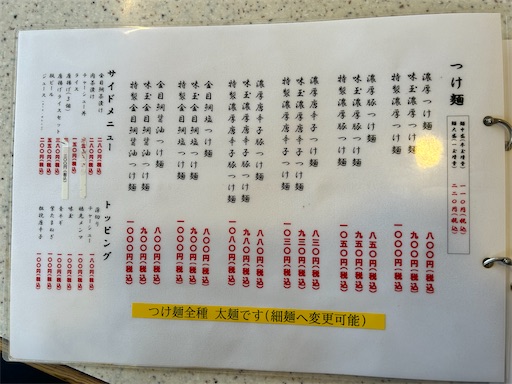 つけ麺
麺中盛(半玉増量) 一一〇円(税込)
麺大盛(一玉増量) 二二〇円(税込)
濃厚つけ麺 八〇〇円(税込)
味玉濃厚つけ麺 九〇〇円(税込)
特製濃厚つけ麺 一〇〇〇円(税込)
濃厚豚つけ麺 八五〇円(税込)
味玉濃厚豚つけ麺 九五〇円(税込)
特製濃厚豚つけ麺 一〇五〇円(税込)
濃厚唐辛子つけ麺 八三〇円(税込)
味玉濃厚唐辛子つけ麺 九三〇円(税込)
特製濃厚唐辛子つけ麺 一〇三〇円(税込)
濃厚唐辛子豚つけ麺 八八〇円(税込)
味玉濃厚唐辛子豚つけ麺 九八〇円(税込)
特製濃厚唐辛子豚つけ麺 一〇八〇円(税込)
金目鯛塩つけ麺 八〇〇円(税込)
味玉金目鯛塩つけ麺 九〇〇円(税込)
特製金目鯛塩つけ麺 一〇〇〇円(税込)
金目鯛醤油つけ麺 八〇〇円(税込)
味玉金目鯛醤油つけ麺 九〇〇円(税込)
特製金目鯛醤油つけ麺 一〇〇〇円(税込)
サイドメニュー
金目鯛茶漬け 二八〇円(税込)
肉茶漬け 二八〇円(税込)
チャーシュー丼
ライス 一五〇円(税込)
唐揚げ(3個)
唐揚げライスセット
瓶ビール 五五〇円(税込)
ジュース 二〇〇円(税込)
トッピング
チャーシュー
味玉 一〇〇円(税込)
穂先メンマ
青ネギ 一〇〇円(税込)
紫たまねぎ 一〇〇円(税込)
粗挽唐辛子 一〇〇円(税込)
つけ麺全種 太麺です(細麺へ変更可能)